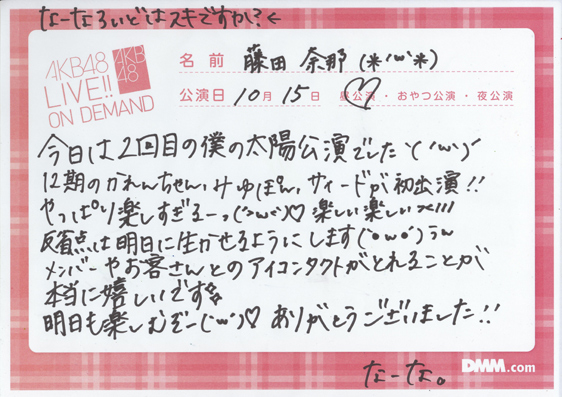 なーなろいどはスキですか?←
AKB48
LIVE!!
ON DEMAND
AKB
48
名前 藤田 奈那 (*'ω'*)
公演日 10月 15日 昼公演・おやつ公演・夜公演
今日は2回目の僕の太陽公演でした ヽ('ω')ノ
12期のかれんちゃん、みゆぽん、サイードが初出演!!
やっぱり楽しすぎるーっ(´>ω<`)♡ 楽しい楽しい
反省点は明日に生かせるようにします(`・ω・´)
メンバーやお客さんとのアイコンタクトがとれることが
本当に嬉しいです
明日も楽しむぞー('ω')♡ ありがとうございました!!
なーな。
DMM.com